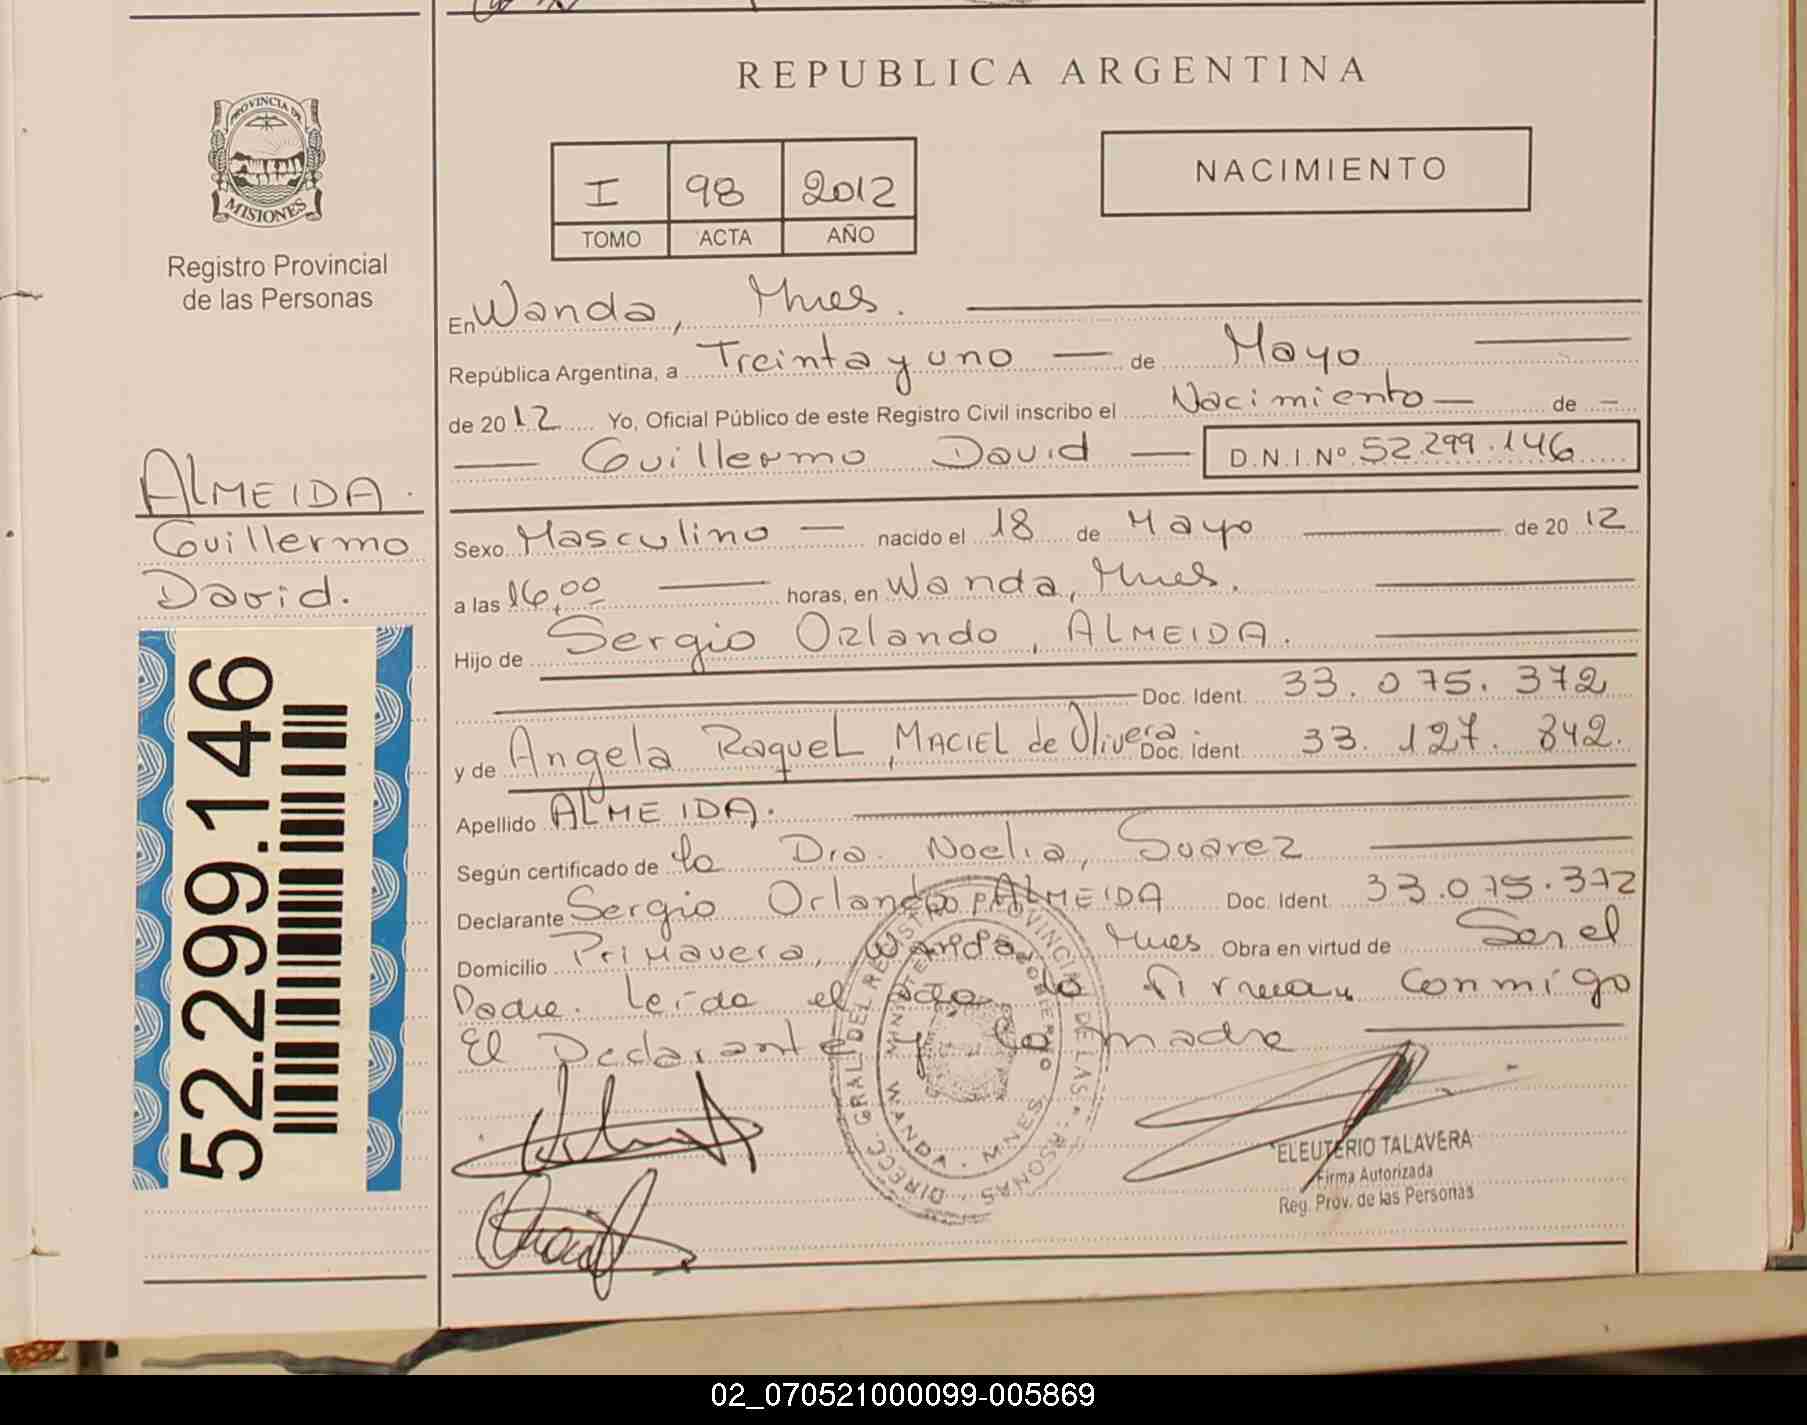 REPUBLICA ARGENTINA
PROVINCIA DE
MISIONES
Registro Provincial
de las Personas
I 98 2012
TOMO ACTA AÑO
NACIMIENTO
En Wanda, Mnes.
República Argentina, a Treinta y uno de Mayo
de 2012 Yo, Oficial Público de este Registro Civil inscribo el Nacimiento de
Guillermo David D.N.I.Nº 52.299.146
ALMEIDA.
Guillermo
David.
52.299.146
Sexo Masculino nacido el 18 de Mayo de 2012
a las 16,00 horas, en Wanda, Mnes.
Hijo de Sergio Orlando, ALMEIDA.
Doc. Ident. 33.075.372
y de Angela Raquel, MACIEL de Olivera Doc. Ident. 33.127.842.
Apellido ALMEIDA.
Según certificado de la Dra. Noelia, Suarez
Declarante Sergio Orlando ALMEIDA Doc. Ident. 33.075.372
Domicilio Primavera, Wanda, Mnes Obra en virtud de Ser el
Padre. Leída el acta, la firman conmigo
El Declarante y la madre
DIRECC. GRAL. DEL REGISTRO PROVINCIAL DE LAS PERSONAS
MINISTERIO DE GOBIERNO
WANDA - MNES
ELEUTERIO TALAVERA
Firma Autorizada
Reg. Prov. de las Personas
02_070521000099-005869